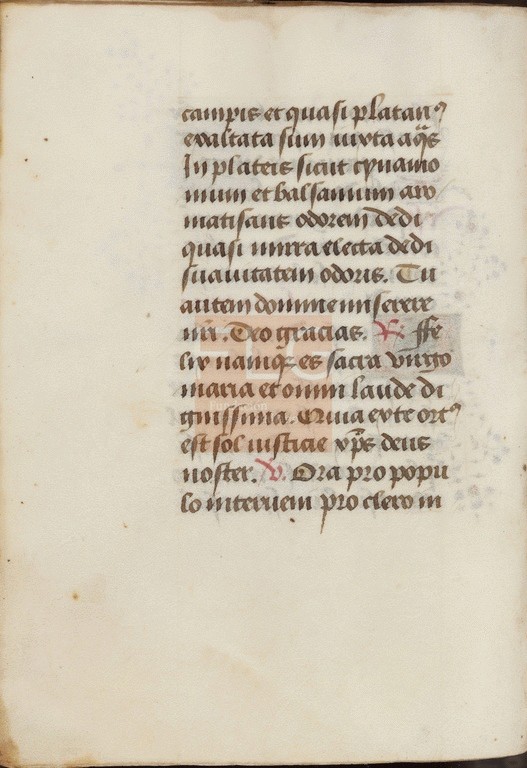 campis et quasi platanꝰ
exaltata sum iuxta aq̄s
In plateis sicut cynamo
mum et balsamum aro
matisans odorem dedi
quasi mirra electa dedi
suauitatem odoris. Tu
autem domine miserere
nr̄i. Deo gracias. R. ffe
lix namqꝫ es sacra virgo
maria et omni laude di
gnissima. Quia ex te ortꝰ
est sol iusticie xp̄s deus
noster. v. Ora pro popu
lo interueni pro clero in